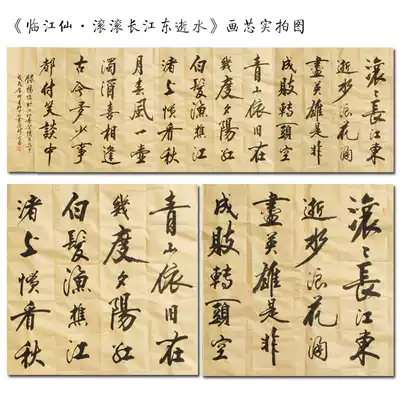 《临江仙·滚滚长江东逝水》画芯实拍图
滚〻長江東
逝水浪花淘
盡英雄是非
成敗轉頭空
青山依旧在
幾度夕陽红
白髮漁樵江
渚上惯看秋
月春風一壶
濁酒喜相逢
古今多少事
都付笑談中
青山依旧在
幾度夕陽红
白髮漁樵江
渚上惯看秋
滚〻長江東
逝水浪花淘
盡英雄是非
成敗轉頭空